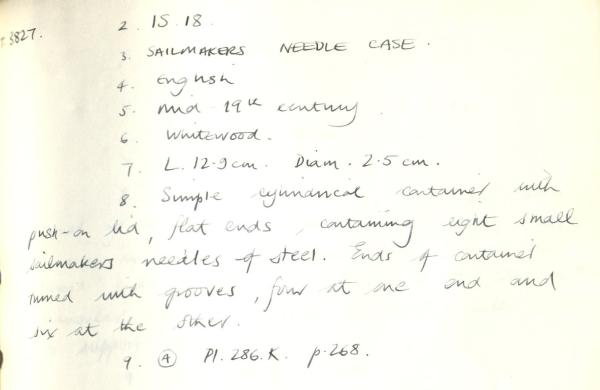 T. 3827.
2. IS.18.
3. SAILMAKERS NEEDLE CASE.
4. English
5. Mid-19th century.
6. Whitewood.
7. L. 12.9cm. Diam. 2.5cm.
8. Simple cylindrical container with
push-on lid, flat ends, containing eight small
sailmakers needles of steel. Ends of container
turned with grooves, four at one end and
six at the other.
9. (A) Pl. 286.K. p.268.